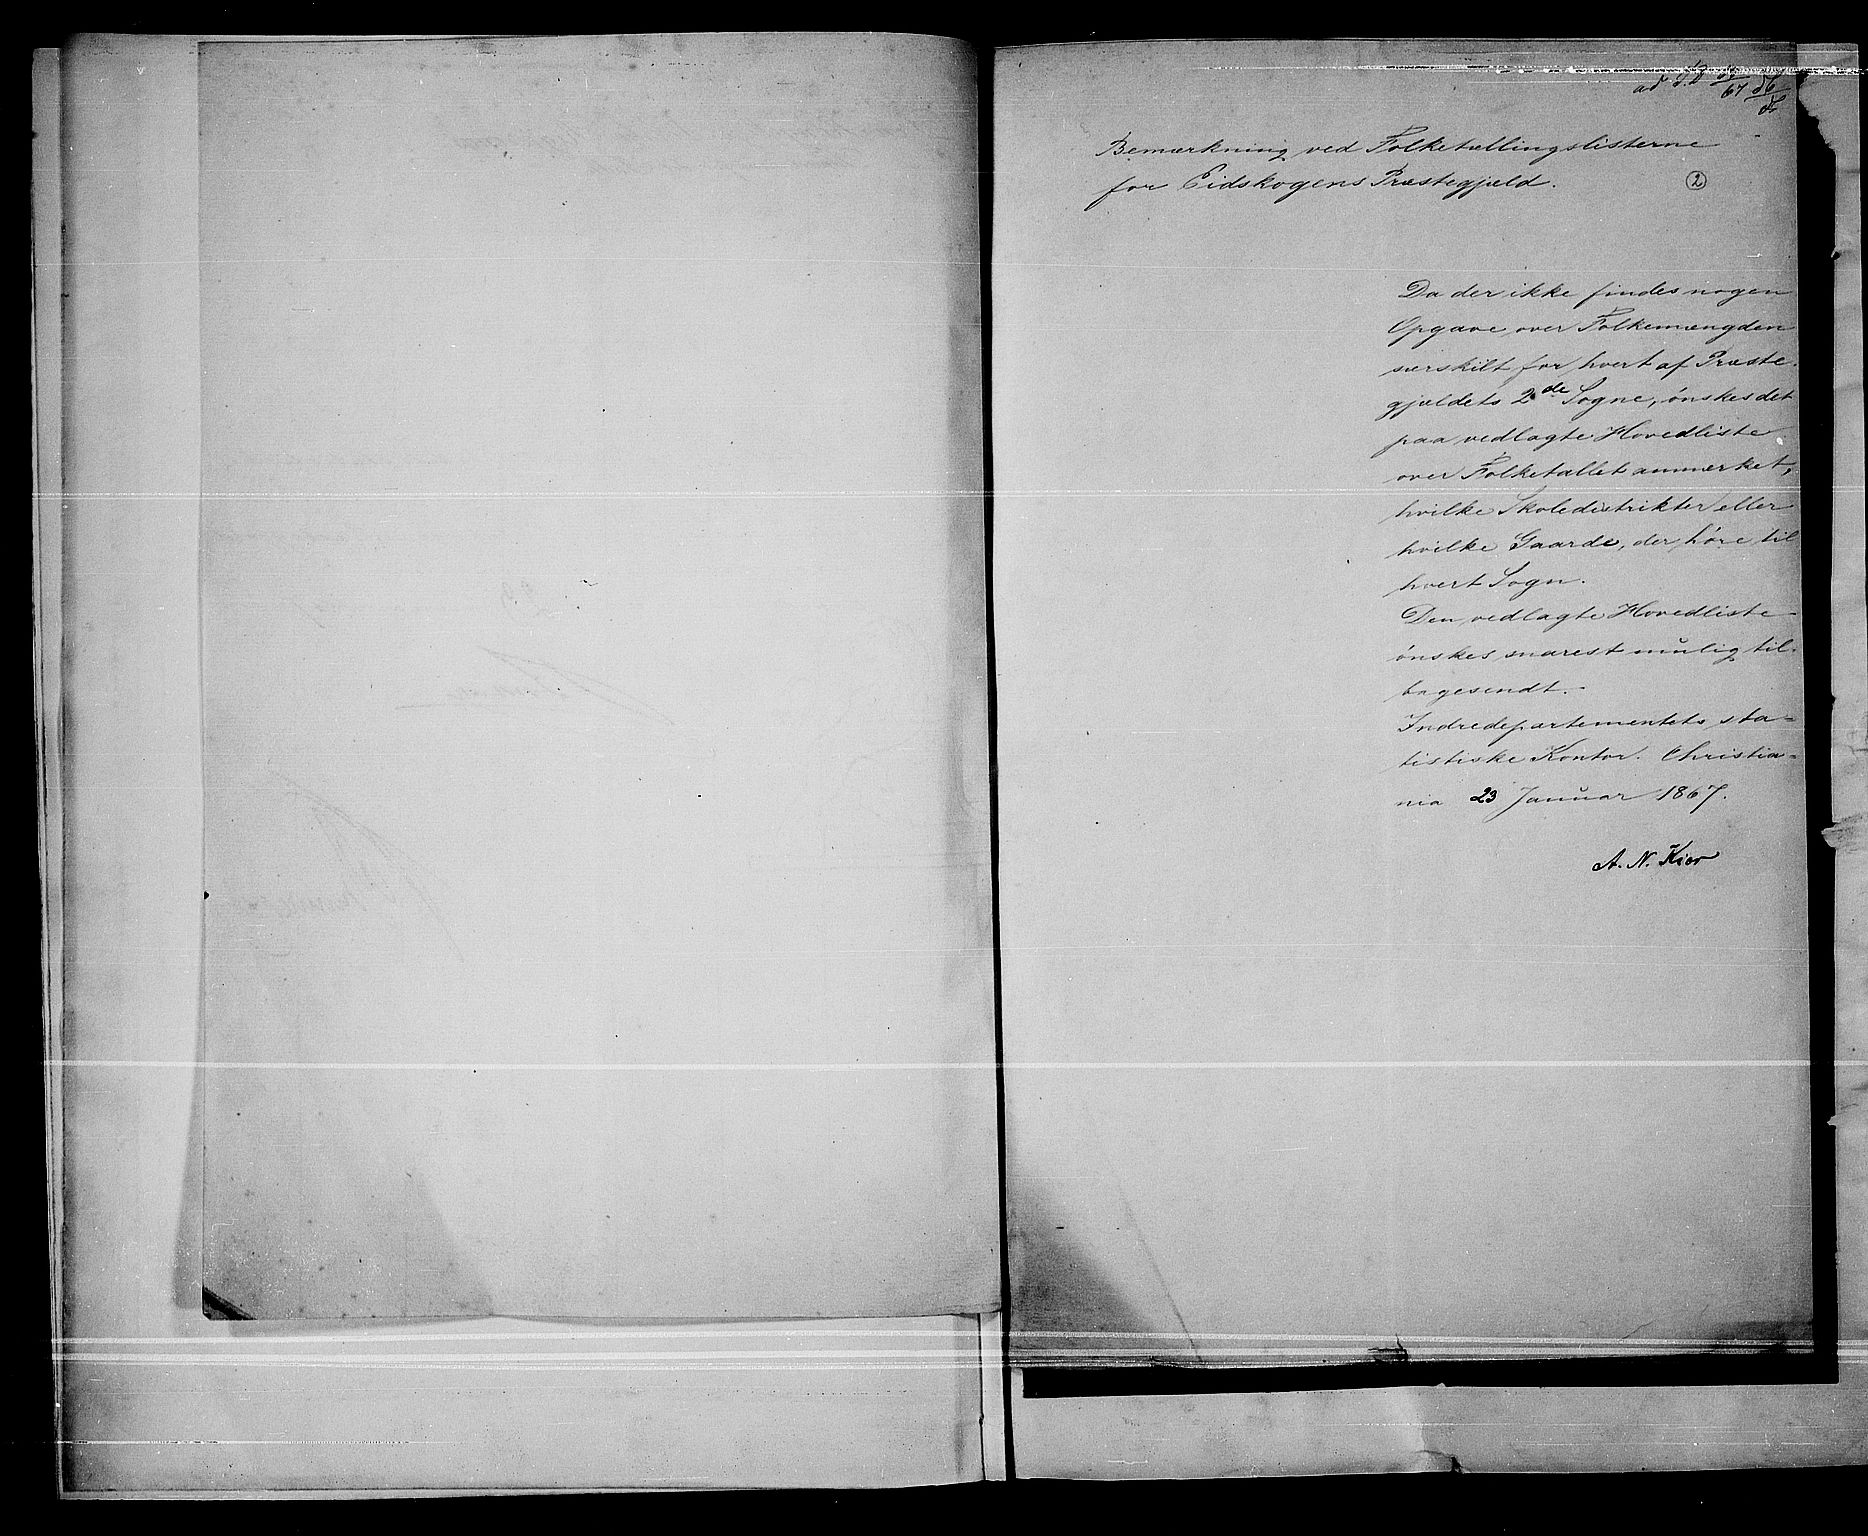 ad
67
Bemærkning ved Folketællingslisterne
for Eidskogens Præstegjæld.
2
Da der ikke findes nogen
Opgave over Folkemængden
særskilt for hvert af Præste-
gjældets 2de Sogne, ønskes det
paa vedlagte Hovedliste
over Folketallet anmærket,
hvilke Skoledistrikter eller
hvilke Gaarde, der høre til
hvert Sogn.
Den vedlagte Hovedliste
ønskes snarest mulig til-
bagesendt.
Indredepartementets sta-
tistiske Kontor. Christia-
nia 23 Januar 1867.
A. N. Kiær